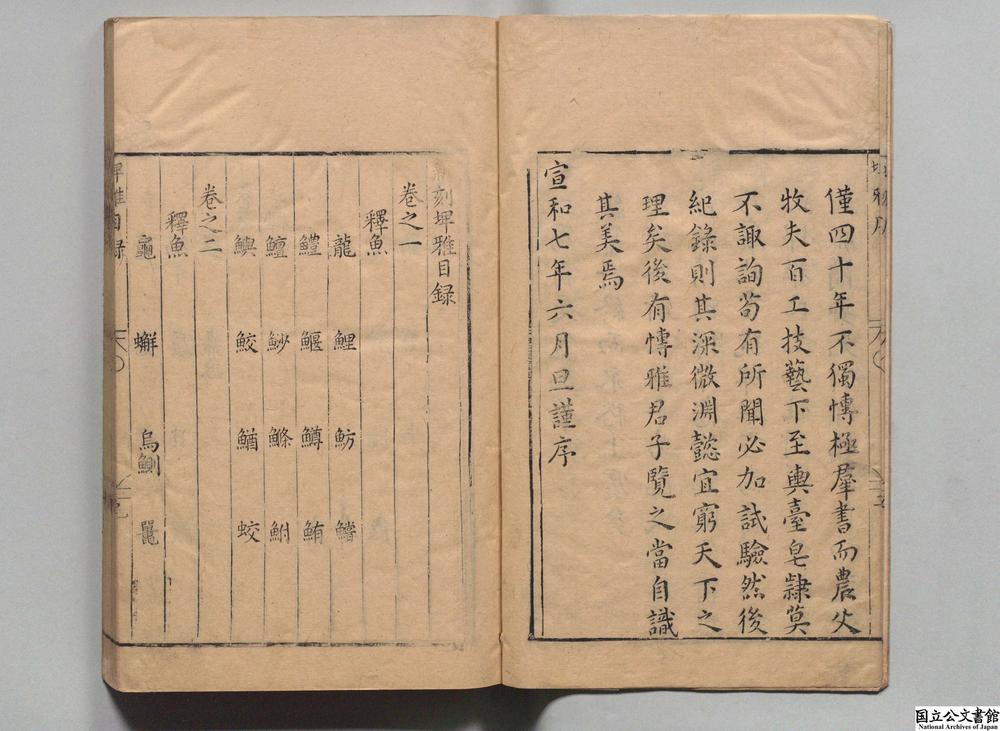 僅四十年不獨慱極羣書而農父
牧夫百工技藝下至輿臺皂隷莫
不諏詢苟有所聞必加試驗然後
紀錄則其深微淵懿宜窮天下之
理矣後有慱雅君子覽之當自識
其美焉
宣和七年六月旦謹序
刻埤雅目録
卷之一
釋魚
龍 鯉 魴 鱨
鱧 鰋 鱒 鮪
鱣 魦 鰷 鮒
鱮 鮫 鰌 蛟
卷之二
釋魚
龜 蠏 烏鰂 鼉
埤雅目録
国立公文書館
National Archives of Japan